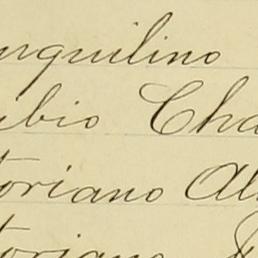 urquilino
ibio Cha
toriano Al
toriano